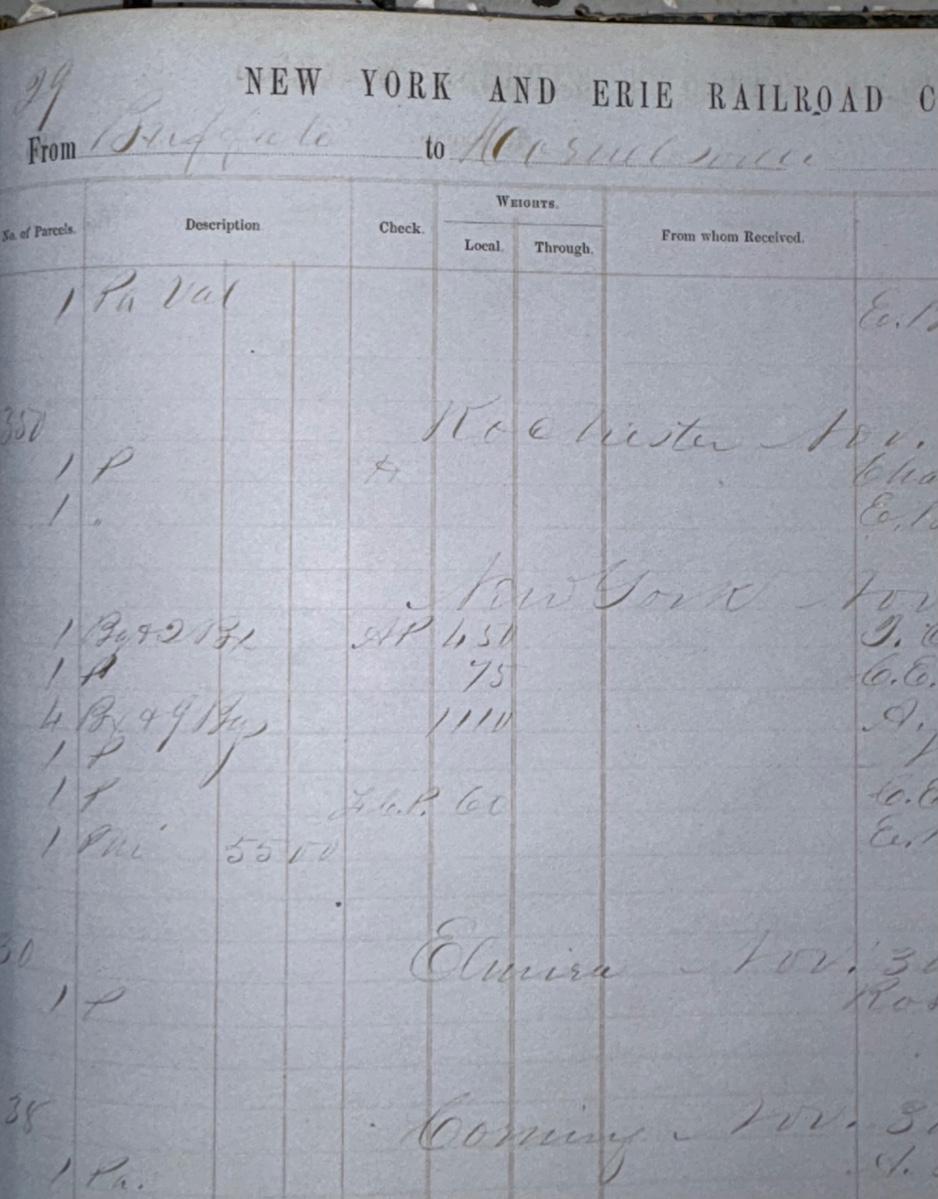 29
NEW YORK AND ERIE RAILROAD C
From Buffalo to Hornellsville
No. of Parcels. Description Check. WEIGHTS. Local. Through. From whom Received.
1 Pa Val
350 Rochester Nov.
1 P Cha
1 "
New York Nov
1 Bg & 2 Bx AP 450
1 P 75 C.E.
4 Bx & 9 Bgs 1110 A.
1 P
1 P 60 C.E
1 55 00
30 Elmira Nov. 30
1 P Ros
38 Corning Nov. 3
1 Pa.